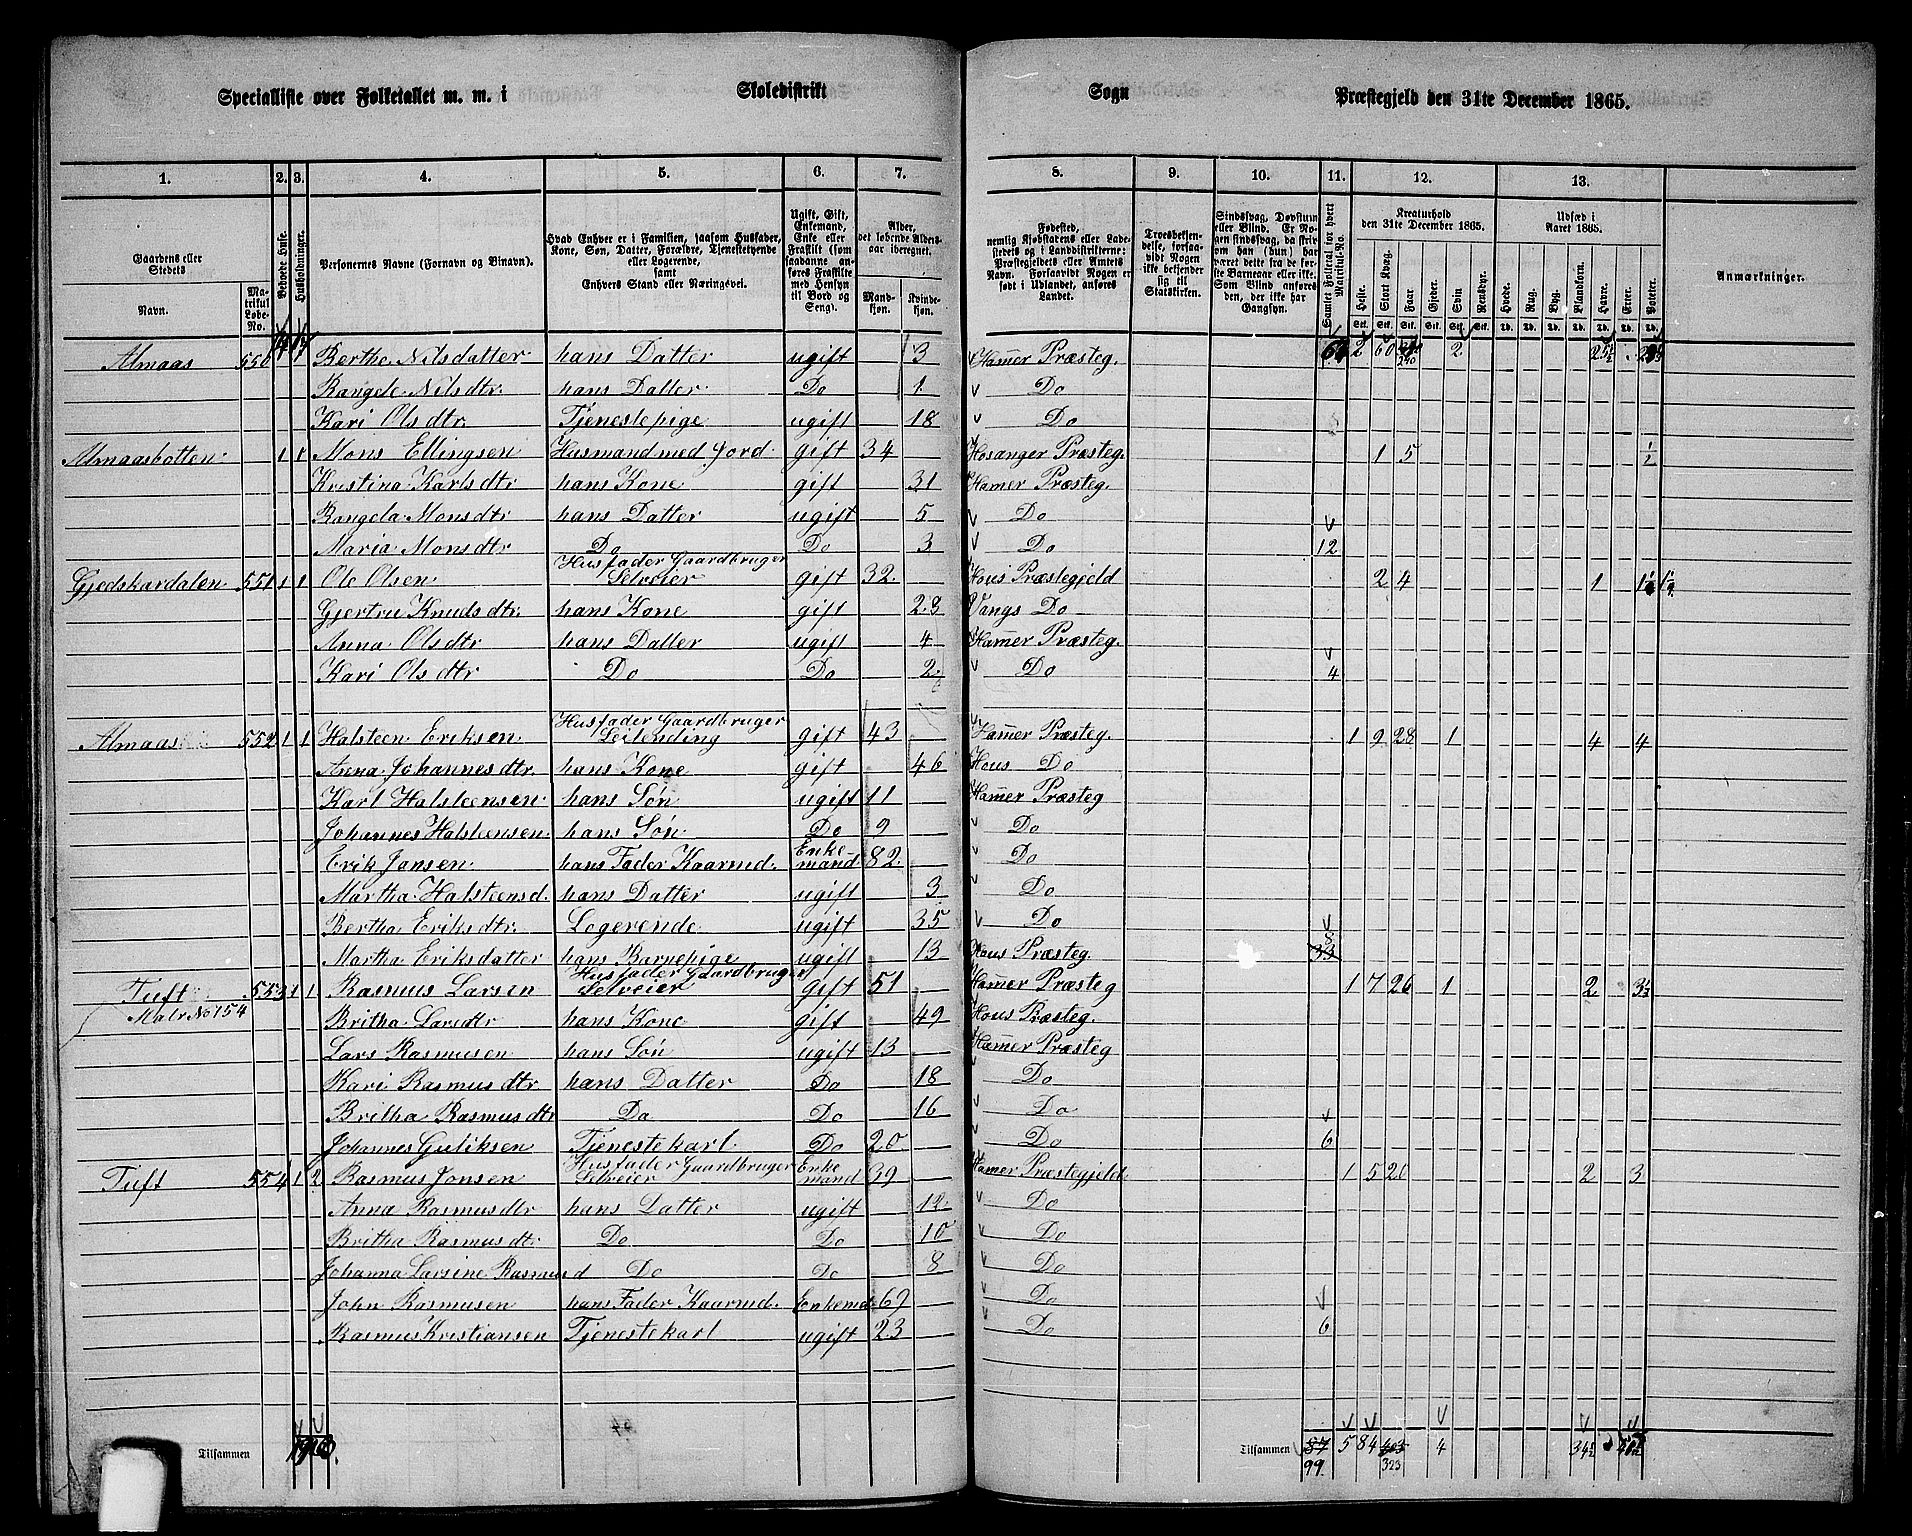 Specialliste over Folketallet m. m. i Skoledistrikt Sogn Præstegjeld den 31te December 1865.
1. 2. 3. 4. 5. 6. 7. 8. 9. 10. 11. 12. 13.
Gaardens eller Stedets
Navn.
Matrikul Løbe-No.
Beboede Huse.
Husholdninger.
Personernes Navne (Fornavn og Binavn).
Hvad Enhver er i Familien, saasom Husfader, Kone, Søn, Datter, Forældre, Tjenestetyende eller Logerende, samt Enhvers Stand eller Næringsvei.
Ugift, Gift, Enkemand, Enke eller Fraskilt (som saadanne anføres Fraskilte med Hensyn til Bord og Seng).
Alder, det løbende Aldersaar iberegnet.
Mandkjøn. Kvindekjøn.
Fødested, nemlig Kjøbstadens eller Ladestedets og i Landdistrikterne: Præstegjeldets eller Amtets Navn. Forsaavidt Nogen er født i Udlandet, anføres Landet.
Troesbekjendelse, forsaavidt Nogen ikke bekjender sig til Statskirken.
Sindssvag, Døvstum eller Blind. Er Nogen sindssvag, da skriv om han (hun) har været dette fra de første Barneaar eller ikke. Som Blind anføres den, der ikke har Gangsyn.
Samlet Folketal for hvert Matrikul-No.
Kreaturhold den 31te December 1865.
Heste. Stort Kvæg. Faar. Gjeder. Svin. Rensdyr.
Udsæd i Aaret 1865.
Hvede. Rug. Byg. Blandkorn. Havre. Erter. Poteter.
Anmærkninger.
Almaas 550 Berthe Nilsdatter hans Datter ugift 3 Hamer Præsteg. 2 60 2
Rangele Nilsdtr. hans Datter Do 1 Do
Kari Olsdtr. Tjenestepige ugift 18 Do
Almaasbotten 1 1 Mons Ellingsen Husmand med Jord gift 34 Hosanger Præsteg. 1 5 ½
Kristina Karlsdtr hans Kone gift 31 Hamer Præsteg.
Rangela Monsdtr hans Datter ugift 5 Do
Maria Monsdtr Do Do 3 Do 12
Gjedskardalen 551 1 1 Ole Olsen Husfader Gaardbruger Selveier gift 32. Hous Præstegjeld 2 4 1
Gjertru Knudsdtr. hans Kone gift 28 Vangs Do
Anna Olsdtr hans Datter ugift 4 Hamer Præsteg.
Kari Olsdtr Do Do 2 Do 4
Almaas 552 1 1 Halsteen Eriksen Husfader Gaardbruger Leilending gift 43 Hamer Præsteg. 1 9 28 1 4 4
Anna Johannesdtr. hans Kone gift 46 Hous Do
Karl Halsteensen hans Søn ugift 11 Hamer Præsteg
Johannes Halsteensen hans Søn Do 9 Do
Erik Jansen hans Fader Kaarmd. Enkemand 82. Do
Martha Halsteensd. hans Datter ugift 3 Do
Bertha Eriksdtr. Logerende ugift 35 Do
Martha Eriksdatter hans Barnepige ugift 13 Hous Præsteg.
Tuft 553 1 1 Rasmus Larsen Husfader Gaardbruger Selveier gift 51 Hamer Præsteg 1 7 26 1 2 3½
Matr No 154 Britha Larsdtr hans Kone gift 49 Hous Præsteg.
Lars Rasmusen hans Søn ugift 13 Hamer Præsteg
Kari Rasmusdtr hans Datter Do 18 Do
Britha Rasmusdtr Do Do 16 Do
Johannes Guliksen Tjenestekarl Do 20 Do 6
Tuft 554 1 2 Rasmus Jonsen Husfader Gaardbruger Selveier Enkemand 39 Hamer Præstegjeld 1 5 20 2 3
Anna Rasmusdtr hans Datter ugift 12 Do
Britha Rasmusdtr. Do Do 10 Do
Johanna Larsine Rasmusd Do Do 8 Do
John Rasmusen hans Fader Kaarmd. Enkemd. 67 Do
Rasmus Kristiansen Tjenestekarl ugift 23 Do 6
Tilsammen Tilsammen 87 5 84 4 34½
99. 323